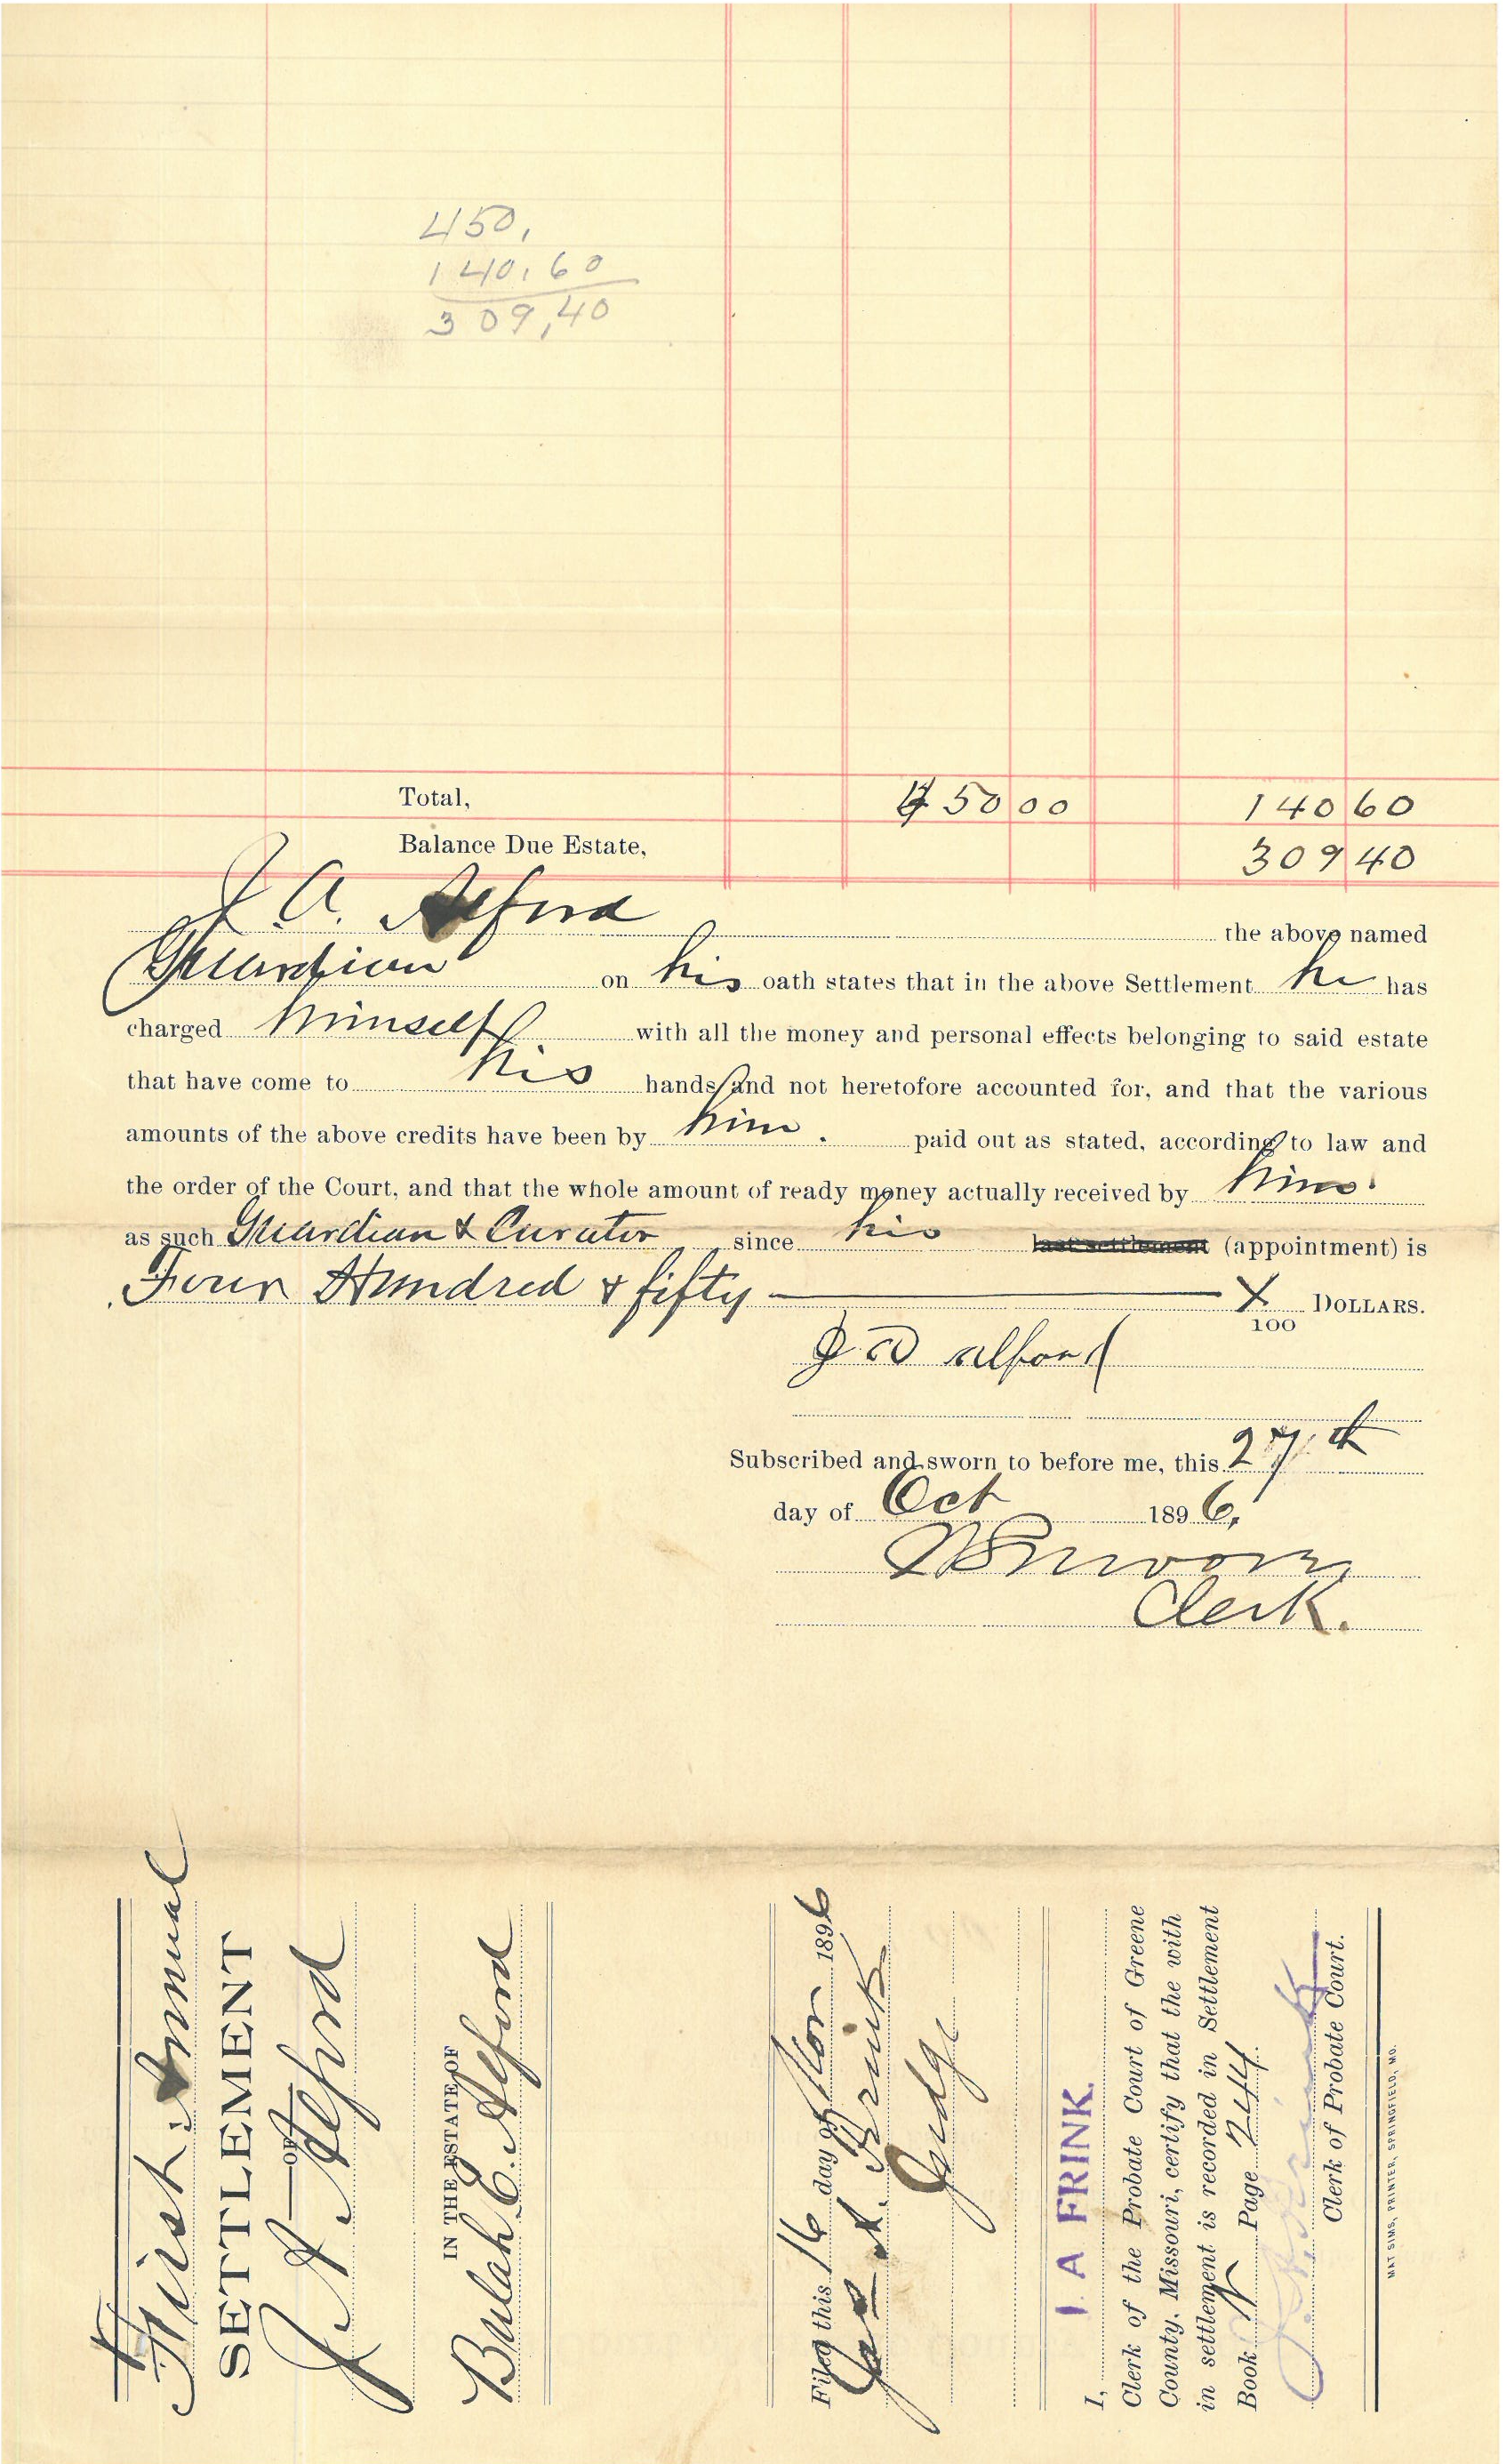 450,
140,60
309,40
Total, 450 00 140 60
Balance Due Estate, 309 40
J A. Alford the above named
Guardian on his oath states that in the above Settlement he has
charged himself with all the money and personal effects belonging to said estate
that have come to his hands and not heretofore accounted for, and that the various
amounts of the above credits have been by him. paid out as stated, according to law and
the order of the Court, and that the whole amount of ready money actually received by him
as such Guardian & Curator since his last settlement (appointment) is
Four Hundred & fifty X/100 DOLLARS.
J A Alford
Subscribed and sworn to before me, this 27th
day of Oct 1896,
Clerk.
First Annual
SETTLEMENT
OF
J. A. Alford
IN THE ESTATE OF
Bulah E. Alford
Filed this 16 day of Nov 1896
Judge
I, I. A FRINK.
Clerk of the Probate Court of Greene
County, Missouri, certify that the with
in settlement is recorded in Settlement
Book Page 244
Clerk of Probate Court.
MAT SIMS, PRINTER, SPRINGFIELD, MO.